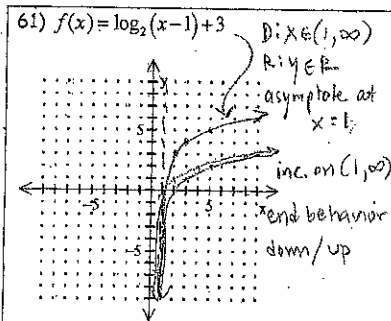 61) f(x) = log₂(x−1)+3
D: x∈(1,∞)
R: y∈ℝ
asymptote at
x=1
inc. on (1,∞)
end behavior
down/up
y
5
-5
5
x
-5